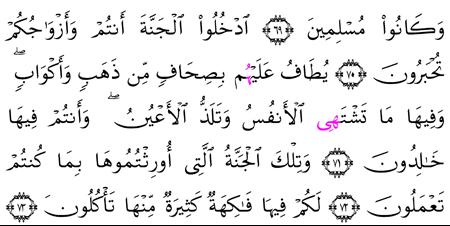 وَكَانُوا۟ مُسْلِمِينَ ۝٦٩ ٱدْخُلُوا۟ ٱلْجَنَّةَ أَنتُمْ وَأَزْوَٰجُكُمْ
تُحْبَرُونَ ۝٧٠ يُطَافُ عَلَيْهُم بِصِحَافٍ مِّن ذَهَبٍ وَأَكْوَابٍ ۖ
وَفِيهَا مَا تَشْتَهِى ٱلْأَنفُسُ وَتَلَذُّ ٱلْأَعْيُنُ ۖ وَأَنتُمْ فِيهَا
خَٰلِدُونَ ۝٧١ وَتِلْكَ ٱلْجَنَّةُ ٱلَّتِىٓ أُورِثْتُمُوهَا بِمَا كُنتُمْ
تَعْمَلُونَ ۝٧٢ لَكُمْ فِيهَا فَٰكِهَةٌ كَثِيرَةٌ مِّنْهَا تَأْكُلُونَ ۝٧٣